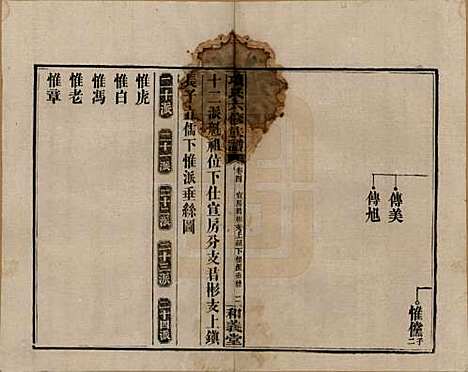 傳美
傳旭
惟儻
子二
六修族譜
卷四
二
和義堂
十二派魁祖位下仕宣房分支君彬支上鎮
長子 儒下惟派垂絲圖
二十派
二十一派
二十二派
二十三派
二十四派
惟虎
惟白
惟馮
惟老
惟章